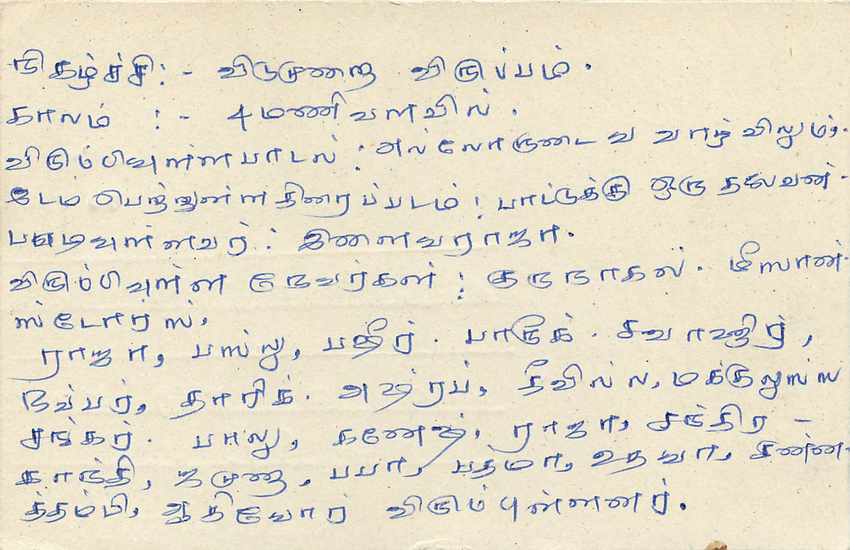 நிகழ்ச்சி :- விடுமுறை விருப்பம்.
காலம் :- 4 மணியளவில்.
விரும்பியுள்ள பாடல் : எல்லோருடைய வாழ்விலும்,
இடம் பெற்றுள்ள திரைப்படம் : பாட்டுக்கு ஒரு தலைவன்.
பாடியுள்ளவர் : இளையராஜா.
விரும்பியுள்ள நேயர்கள் : குருநாகல். மீஸான்
ஸ்டோர்ஸ்,
ராஜா, பஸ்லு, பஷீர். பாரூக். சவாஹிர்,
ஜப்பர், தாரிக். அஷ்ரப்,
சங்கர். பாலு, கணேஷ், ராஜா, சந்திர -
காந்தி, பபா, பத்மா, உதயா, சின்னத்-
தம்பி, ஆகியோர் விரும்புள்ளனர்.